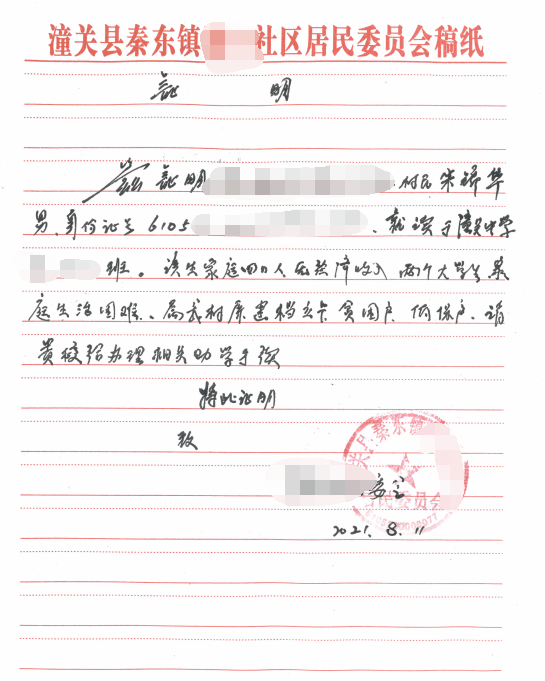 潼关县秦东镇 社区居民委员会稿纸
证 明
兹证明 村民朱 华
男、身份证号6105 、就读于潼关中学
班。该生家庭四口人无经济收入 两个大学生 家
庭生活困难、属我村屏建档立卡贫困户 低保户、请
贵校给办理相关助学手续
特此证明
致
委会
2021.8.11
关县秦东镇
居民委员会